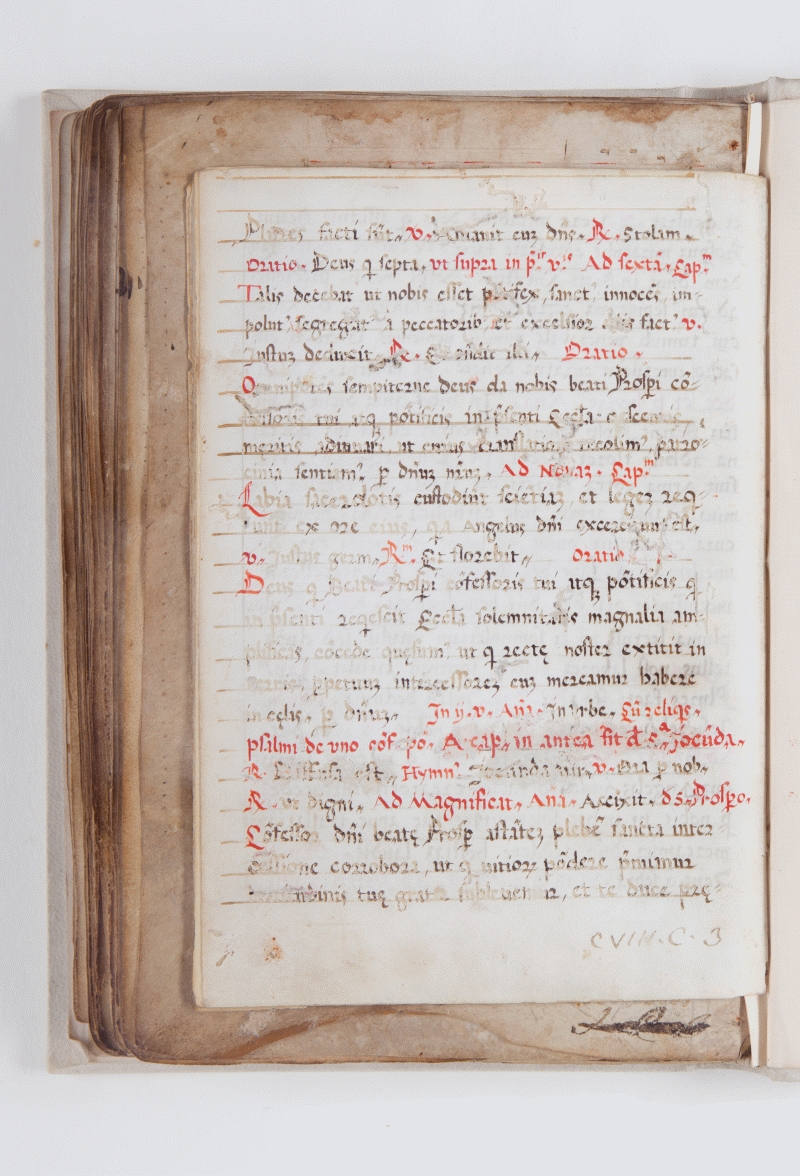 Plures facti sūt, v. Amavit euz dn̄s. R. Stolam.
Oratio. Deus q̄ septa, ut supra in p̄.is v.is Ad sextā, Cap.m
Talis decebat ut nobis esset pōtifex, sanct' innocēs, im-
polut' segregat' a peccatorib' et excelsior celis fact' v.
Justuz deduxit, R. Et ōndit illi, Oratio.
Omnipotēs sempiterne deus da nobis beati Prosp̱i cō-
fessoris tui atq; pōtificis in p̄senti Eccl̄a
meritis adiuvari, ut cuius translationē recolim', patro-
cinia sentiam'. p̱ dn̄uz nr̄uz, Ad Nonaz. Cap.m
Labia sacerdotis custodiūt sciētiaz, et legez req-
runt ex ore eius, q̄a Angelus dn̄i exercituum est,
v. Justus germ. R.m Et florebit, Oratio
Deus q̄ Beati Prosp̱i cōfessoris tui atq; pōtificis q̄
in p̄senti req̄escit Eccl̄a solemnitatis magnalia am-
plificas, cōcede quęsum' ut q̄ rectę noster extitit in
terris, p̱petuuz intercessorez euz mereamur habere
in cęlis, p̱ dn̄uz, In ij. v. Añā. In urbe. Cū reliq̄s,
psalmi de uno cōf. pō. A cap. in antea fit d̄ s.a Jocūda,
R. Diffusa est, Hymn' Jocunda nir, v. Ora p̱ nob,
R. Ut digni, Ad Magnificat, Añā. Ascēsit. d S. Prosp̱o.
Cōfessor dn̄i beatę Prosp̱ astātez plebē sancta inter-
cessione corrobora, ut q̄ uitioꝝ pōdere p̄mimur
beatitudinis tuę gratia subleuemur, et te duce prę-
CVIII.C.3